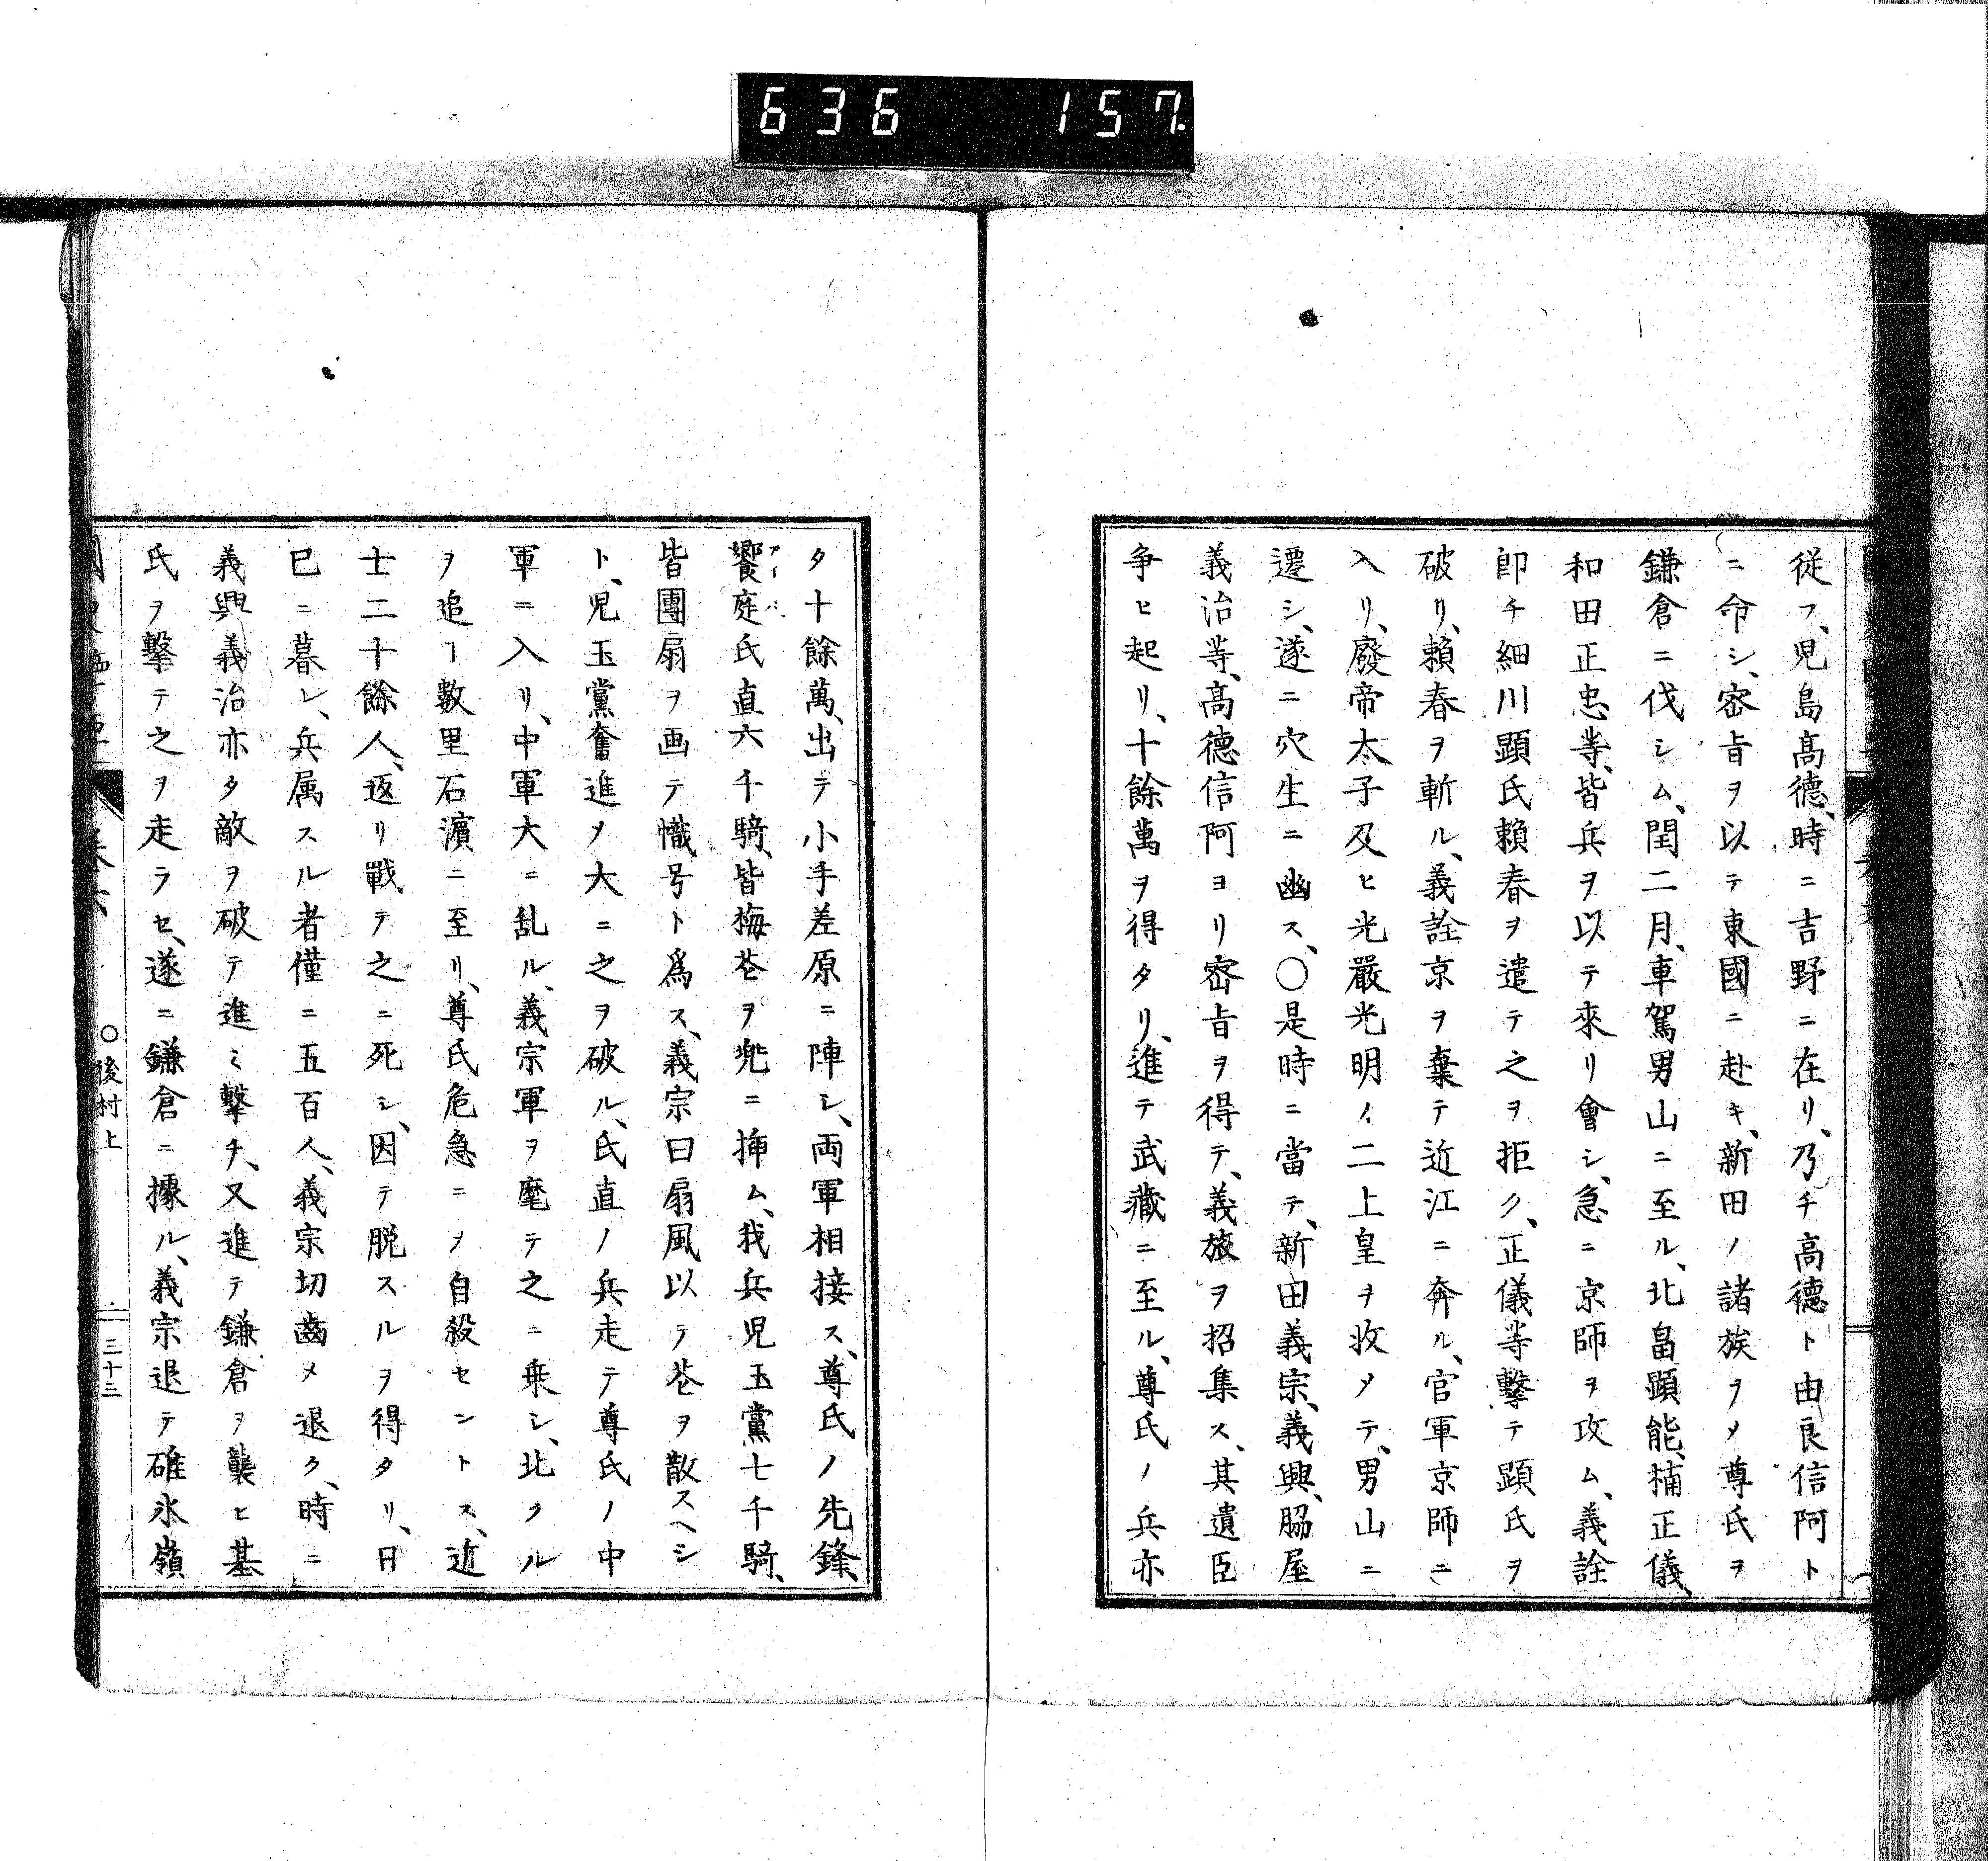 636 157
従フ、児島髙德、時ニ吉野ニ在リ、乃チ高德ト由良信阿ト
ニ命シ、密旨ヲ以テ東國ニ赴キ、新田ノ諸族ヲメ尊氏ヲ
鎌倉ニ伐シム、閏二月、車駕男山ニ至ル、北畠顕能、楠正儀、
和田正忠等、皆兵ヲ以テ來リ會シ、急ニ京師ヲ攻ム、義詮
即チ細川顕氏頼春ヲ遣テ之ヲ拒ク、正儀等撃テ顕氏ヲ
破リ、頼春ヲ斬ル、義詮京ヲ棄テ近江ニ奔ル、官軍京師ニ
入リ、廢帝太子及ヒ光嚴光明ノ二上皇ヲ收メテ、男山ニ
遷シ、遂ニ穴生ニ幽ス、〇是時ニ當テ、新田義宗、義興、脇屋
義治等、髙德信阿ヨリ密旨ヲ得テ、義旅ヲ招集ス、其遺臣
争ヒ起リ、十餘萬ヲ得タリ、進テ武藏ニ至ル、尊氏ノ兵亦
タ十餘萬、出テ小手差原ニ陣シ、両軍相接ス、尊氏ノ先鋒、
饗庭氏直六千騎、皆梅花ヲ兜ニ挿ム、我兵児玉黨七千騎、
皆團扇ヲ画テ幟号ト爲ス、義宗曰扇風以テ花ヲ散スヘシ
ト、児玉黨奮進メ大ニ之ヲ破ル、氏直ノ兵走テ尊氏ノ中
軍ニ入リ、中軍大ニ乱ル、義宗軍ヲ麾テ之ニ乗シ、北クル
ヲ追ヿ數里石濱ニ至リ、尊氏危急ニメ自殺セントス、近
士二十餘人、返リ戰テ之ニ死シ、因テ脱スルヲ得タリ、日
已ニ暮レ、兵属スル者僅ニ五百人、義宗切齒メ退ク、時ニ
義興義治亦タ敵ヲ破テ進ミ撃チ、又進テ鎌倉ヲ襲ヒ基
氏ヲ撃テ之ヲ走ラセ、遂ニ鎌倉ニ據ル、義宗退テ碓氷嶺
〇後村上 三十三